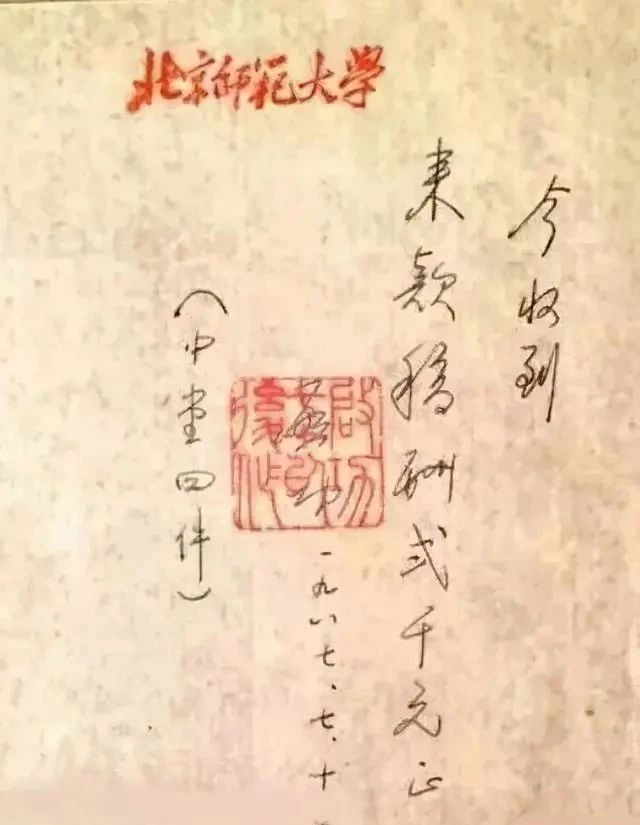 北京师范大学
今收到
来款稿酬弍千元正
启功
一九八七、七、十
（中堂四件）